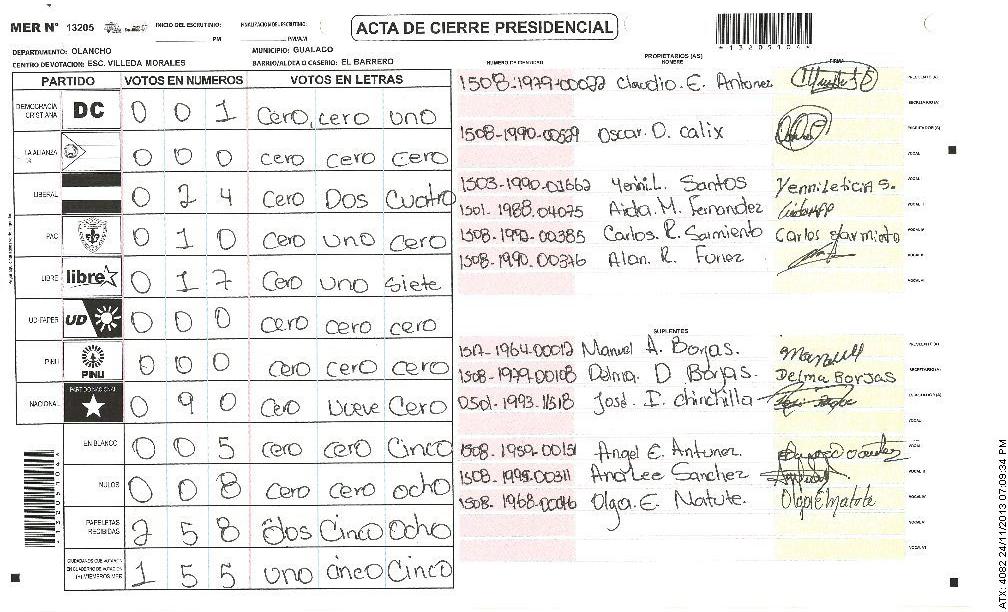 MER N° 13205 INICIO DEL ESCRUTINIO: FINALIZACION DEL ESCRUTINIO:
PM PM/AM
ACTA DE CIERRE PRESIDENCIAL
DEPARTAMENTO: OLANCHO MUNICIPIO: GUALACO
CENTRO DE VOTACION: ESC. VILLEDA MORALES BARRIO/ALDEA O CASERIO: EL BARRERO
PARTIDO VOTOS EN NUMEROS VOTOS EN LETRAS
DEMOCRACIA CRISTIANA DC 0 0 1 Cero, cero uno
LA ALIANZA 0 0 0 cero cero cero
LIBERAL 0 2 4 Cero Dos Cuatro
PAC 0 1 0 Cero uno Cero
LIBRE libre 0 1 7 Cero uno siete
UD-FAPER UD 0 0 0 cero cero cero
PINU PINU 0 0 0 cero cero cero
NACIONAL PARTIDO NACIONAL 0 9 0 Cero nueve Cero
EN BLANCO 0 0 5 cero cero Cinco
NULOS 0 0 8 cero cero ocho
PAPELETAS RECIBIDAS 2 5 8 dos Cinco Ocho
1 5 5 uno cinco Cinco
NUMERO DE IDENTIDAD PROPIETARIOS (AS) NOMBRE FIRMA
Claudio. E. Antonez PRESIDENTE (A)
SECRETARIO (A)
1508-1990-00529 Oscar. D. calix ESCRUTADOR (A)
VOCAL
1503-1990-01662 Yenni.L. Santos Yennileticia S.
1501-1988-04075 Aida. M. Fernandez
1508-1992-00385 Carlos. R. Sarmiento Carlos Sarmiento
1508-1990-00376 Alan. R. Funez
SUPLENTES
Manuel A. Borjas. Manuel PRESIDENTE (A)
1508-1979-00108 Delma. D Borjas. Delma Borjas SECRETARIO (A)
0501-1993-11518 José. I. chinchilla ESCRUTADOR (A)
VOCAL
1508-1959-00151 Angel E. Antunez
Sanchez
1508-1968-00046 Olga. E. Matute. Olga E Matute
ATX: 4082 24/11/2013 07:09:34 PM